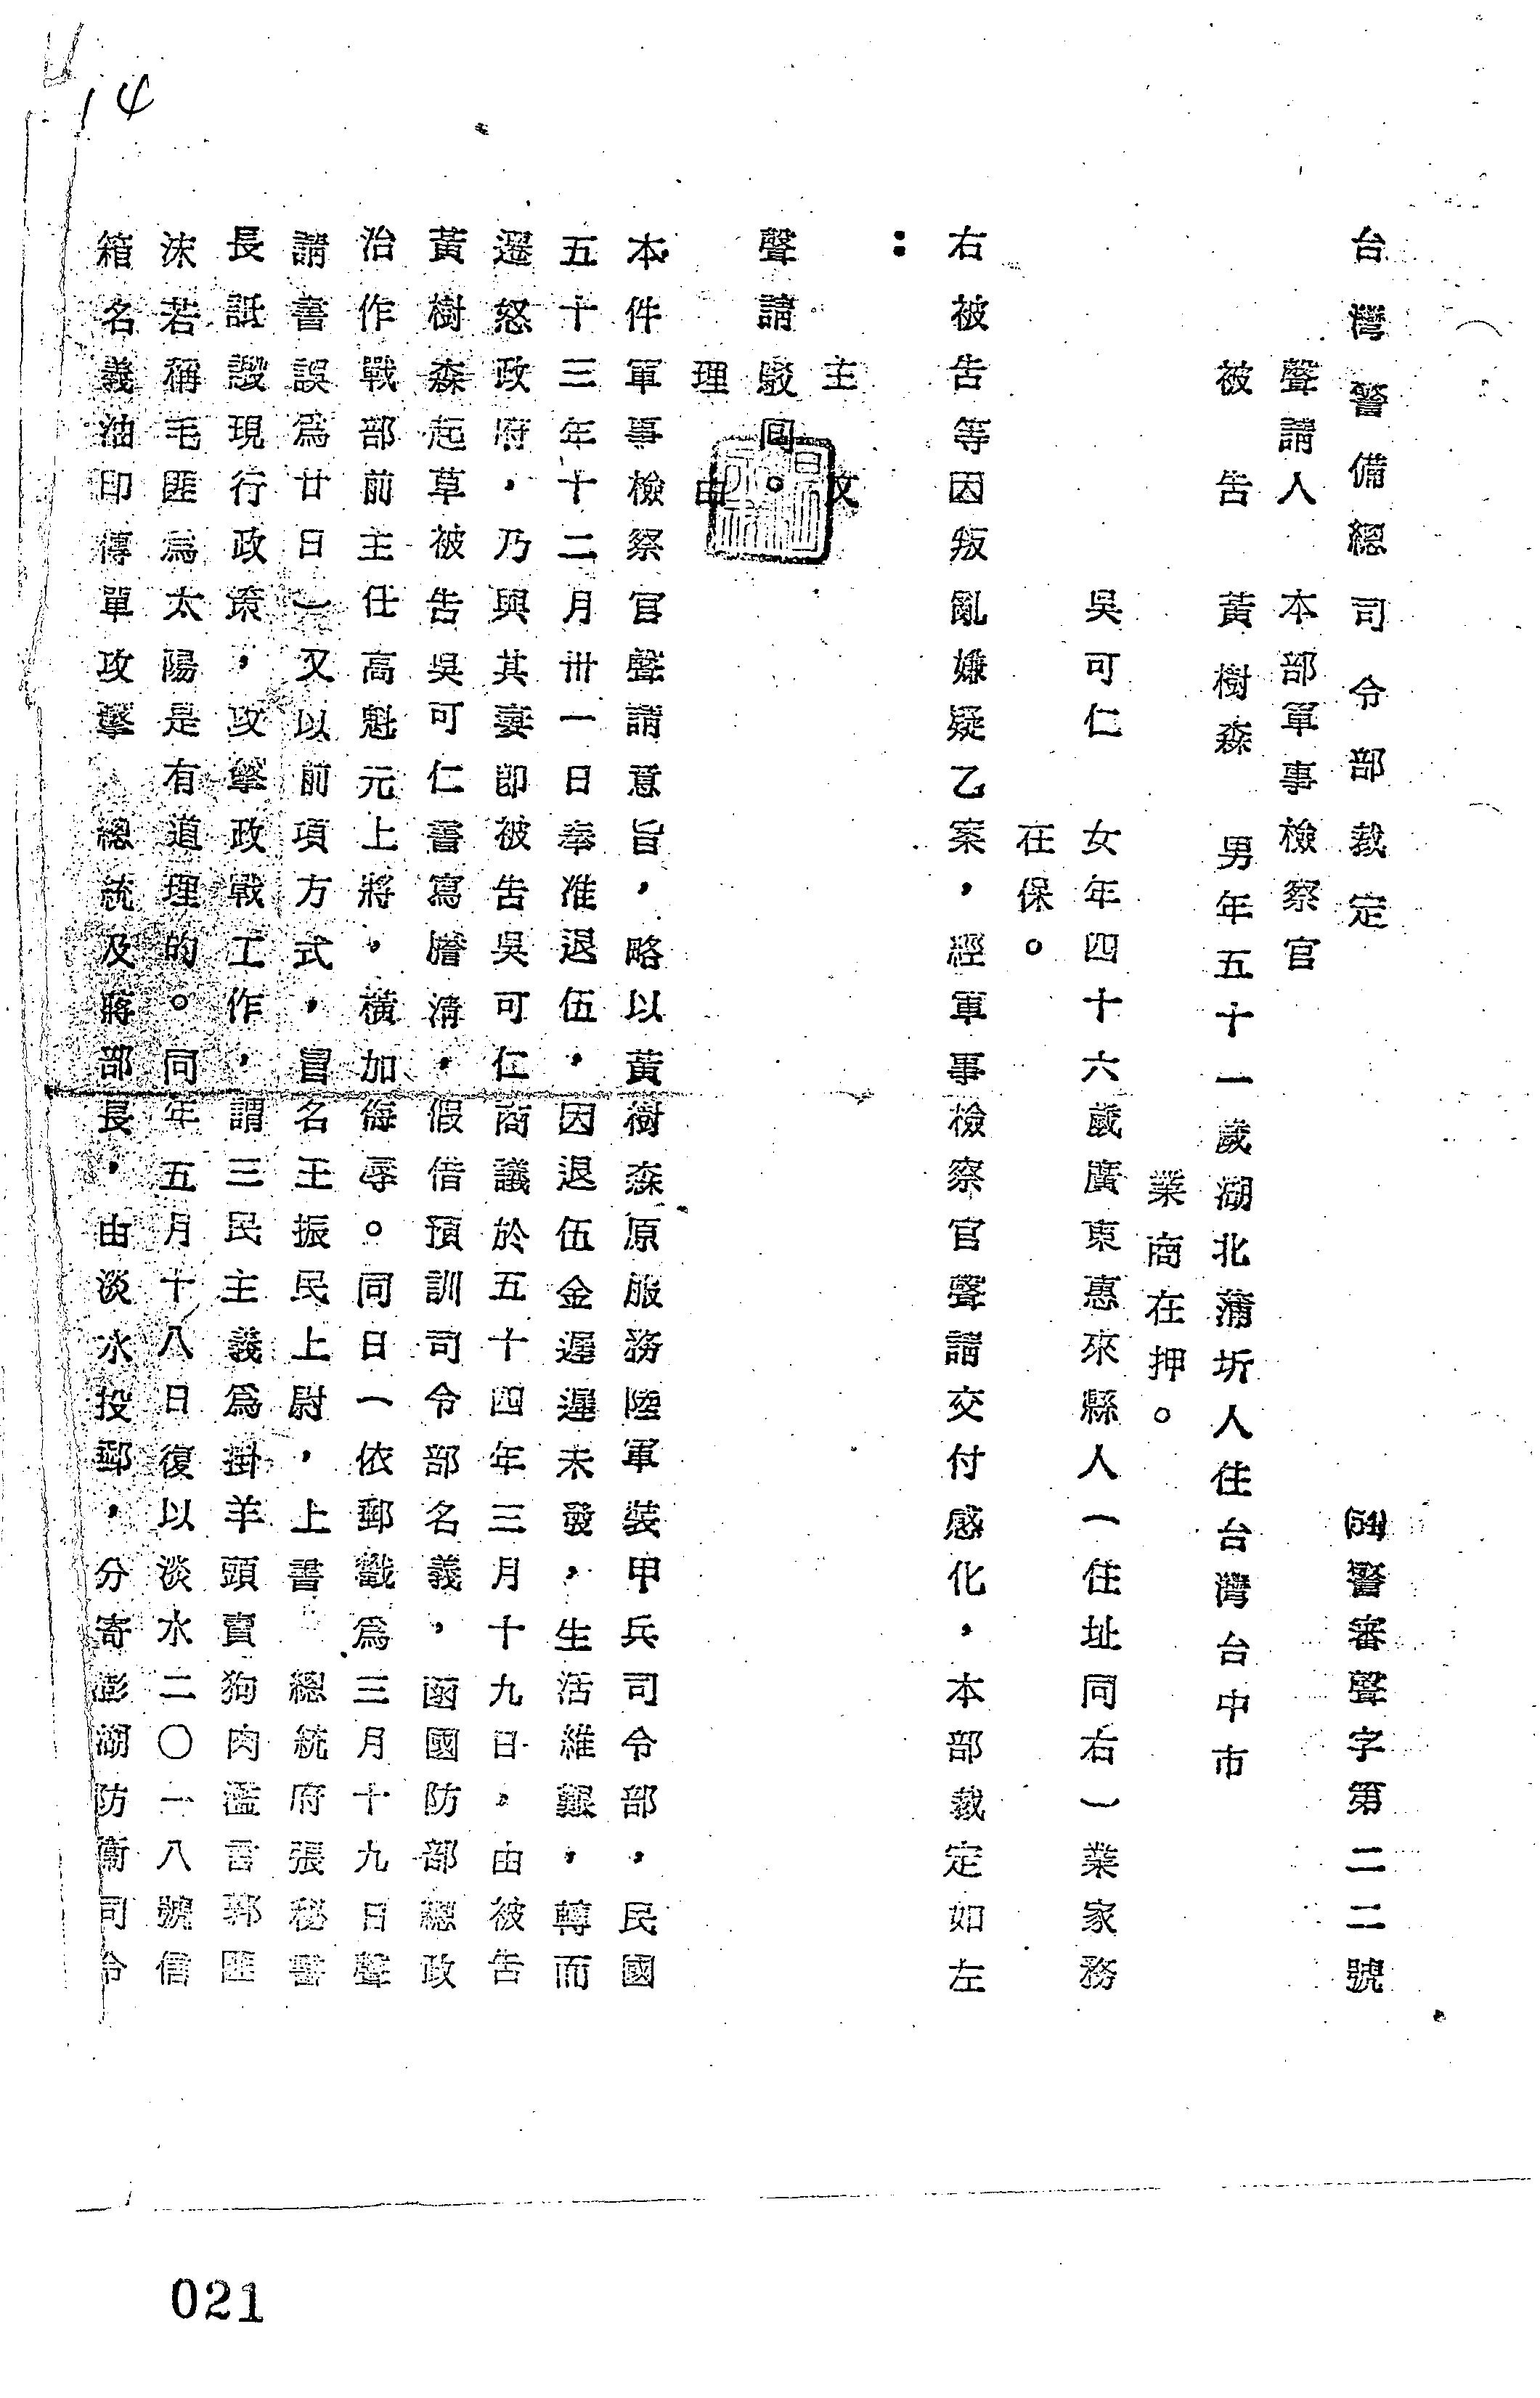 14
台灣警備總司令部裁定 (54)警審聲字第二二號
聲請人 本部軍事檢察官
被告 黃樹森 男年五十一歲湖北蒲圻人住台灣台中市
業商在押。
吳可仁 女年四十六歲廣東惠來縣人(住址同右)業家務
在保。
右被告等因叛亂嫌疑乙案,經軍事檢察官聲請交付感化,本部裁定如左
:
主文
聲請駁回。
理由
本件軍事檢察官聲請意旨,略以黃樹森原服務陸軍裝甲兵司令部,民國
五十三年十二月卅一日奉准退伍,因退伍金遲遲未發,生活維艱,轉而
遷怒政府,乃與其妻即被告吳可仁商議於五十四年三月十九日,由被告
黃樹森起草被告吳可仁書寫謄清,假借預訓司令部名義,函國防部總政
治作戰部前主任高魁元上將,橫加侮辱。同日一依郵戳為三月十九日聲
請書誤為廿日)又以前項方式,冒名王振民上尉,上書 總統府張秘書
長詆譭現行政策,攻擊政戰工作,謂三民主義為掛羊頭賣狗肉濫言郭匪
沫若稱毛匪為太陽是有道理的。同年五月十八日復以淡水二〇一八號信
箱名義油印傳單攻擊 總統及蔣部長,由淡水投郵,分寄澎湖防衛司令
021